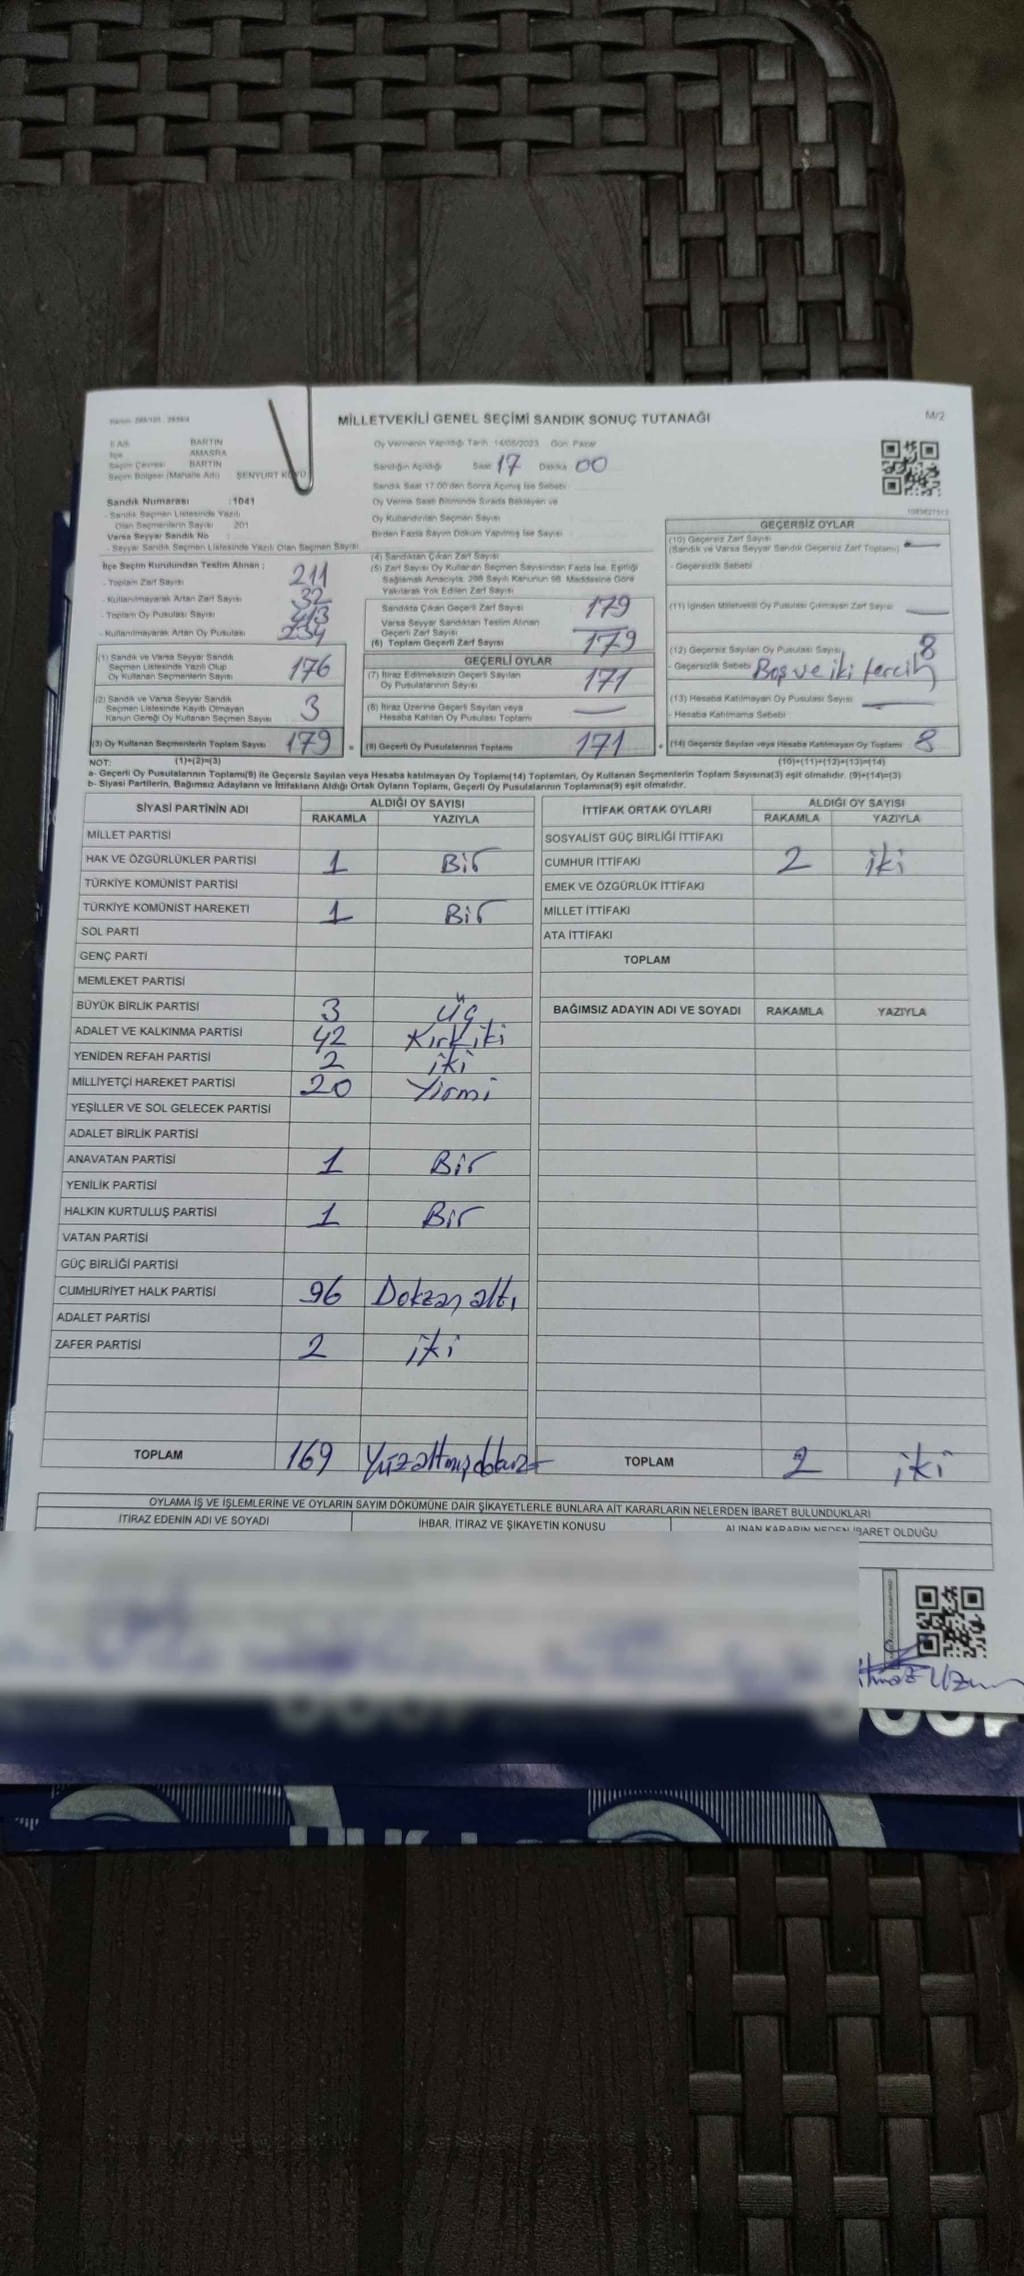 MİLLETVEKİLİ GENEL SEÇİMİ SANDIK SONUÇ TUTANAĞI
M/2
İl Adı BARTIN
İlçe AMASRA
Seçim Çevresi BARTIN
Seçim Bölgesi (Mahalle Adı) ŞENYURT KÖYÜ
Sandık Numarası : 1041
- Sandık Seçmen Listesinde Yazılı
Olan Seçmenlerin Sayısı 201
Varsa Seyyar Sandık No
- Seyyar Sandık Seçmen Listesinde Yazılı Olan Seçmen Sayısı
Oy Vermenin Yapıldığı Tarih 14/05/2023 Gün: Pazar
Sandığın Açıldığı Saat 17 Dakika 00
Sandık Saat 17.00'den Sonra Açılmış İse Sebebi
Oy Verme Saati Bitiminde Sırada Bekleyen ve
Oy Kullandırılan Seçmen Sayısı
Birden Fazla Sayım Döküm Yapılmış İse Sayısı
İlçe Seçim Kurulundan Teslim Alınan :
- Toplam Zarf Sayısı 211
- Kullanılmayarak Artan Zarf Sayısı 32
- Toplam Oy Pusulası Sayısı 413
- Kullanılmayarak Artan Oy Pusulası 234
(1) Sandık ve Varsa Seyyar Sandık
Seçmen Listesinde Yazılı Olup
Oy Kullanan Seçmenlerin Sayısı 176
(2) Sandık ve Varsa Seyyar Sandık
Seçmen Listesinde Kayıtlı Olmayan
Kanun Gereği Oy Kullanan Seçmen Sayısı 3
(3) Oy Kullanan Seçmenlerin Toplam Sayısı 179
(4) Sandıktan Çıkan Zarf Sayısı
(5) Zarf Sayısı Oy Kullanan Seçmen Sayısından Fazla İse, Eşitliği
Sağlamak Amacıyla, 298 Sayılı Kanunun 98. Maddesine Göre
Yakılarak Yok Edilen Zarf Sayısı
Sandıkta Çıkan Geçerli Zarf Sayısı 179
Varsa Seyyar Sandıktan Teslim Alınan
Geçerli Zarf Sayısı
(6) Toplam Geçerli Zarf Sayısı 179
GEÇERLİ OYLAR
(7) İtiraz Edilmeksizin Geçerli Sayılan
Oy Pusulalarının Sayısı 171
(8) İtiraz Üzerine Geçerli Sayılan veya
Hesaba Katılan Oy Pusulası Toplamı
(9) Geçerli Oy Pusulalarının Toplamı 171
GEÇERSİZ OYLAR
(10) Geçersiz Zarf Sayısı
(Sandık ve Varsa Seyyar Sandık Geçersiz Zarf Toplamı)
- Geçersizlik Sebebi
(11) İçinden Milletvekili Oy Pusulası Çıkmayan Zarf Sayısı
(12) Geçersiz Sayılan Oy Pusulası Sayısı 8
- Geçersizlik Sebebi Boş ve iki tercih
(13) Hesaba Katılmayan Oy Pusulası Sayısı
- Hesaba Katılmama Sebebi
(14) Geçersiz Sayılan veya Hesaba Katılmayan Oy Toplamı 8
NOT: (1)+(2)=(3) (10)+(11)+(12)+(13)=(14)
a- Geçerli Oy Pusulalarının Toplamı(9) ile Geçersiz Sayılan veya Hesaba katılmayan Oy Toplamı(14) Toplamları, Oy Kullanan Seçmenlerin Toplam Sayısına(3) eşit olmalıdır. (9)+(14)=(3)
b- Siyasi Partilerin, Bağımsız Adayların ve İttifakların Aldığı Ortak Oyların Toplamı, Geçerli Oy Pusulalarının Toplamına(9) eşit olmalıdır.
SİYASİ PARTİNİN ADI ALDIĞI OY SAYISI
RAKAMLA YAZIYLA
MİLLET PARTİSİ
HAK VE ÖZGÜRLÜKLER PARTİSİ 1 Bir
TÜRKİYE KOMÜNİST PARTİSİ
TÜRKİYE KOMÜNİST HAREKETİ 1 Bir
SOL PARTİ
GENÇ PARTİ
MEMLEKET PARTİSİ
BÜYÜK BİRLİK PARTİSİ 3 üç
ADALET VE KALKINMA PARTİSİ 42 Kırkiki
YENİDEN REFAH PARTİSİ 2 iki
MİLLİYETÇİ HAREKET PARTİSİ 20 Yirmi
YEŞİLLER VE SOL GELECEK PARTİSİ
ADALET BİRLİK PARTİSİ
ANAVATAN PARTİSİ 1 Bir
YENİLİK PARTİSİ
HALKIN KURTULUŞ PARTİSİ 1 Bir
VATAN PARTİSİ
GÜÇ BİRLİĞİ PARTİSİ
CUMHURİYET HALK PARTİSİ 96 Doksan altı
ADALET PARTİSİ
ZAFER PARTİSİ 2 iki
TOPLAM 169 Yüzaltmışdokuz
İTTİFAK ORTAK OYLARI ALDIĞI OY SAYISI
RAKAMLA YAZIYLA
SOSYALİST GÜÇ BİRLİĞİ İTTİFAKI
CUMHUR İTTİFAKI 2 iki
EMEK VE ÖZGÜRLÜK İTTİFAKI
MİLLET İTTİFAKI
ATA İTTİFAKI
TOPLAM
BAĞIMSIZ ADAYIN ADI VE SOYADI RAKAMLA YAZIYLA
TOPLAM 2 iki
OYLAMA İŞ VE İŞLEMLERİNE VE OYLARIN SAYIM DÖKÜMÜNE DAİR ŞİKAYETLERLE BUNLARA AİT KARARLARIN NELERDEN İBARET BULUNDUKLARI
İTİRAZ EDENİN ADI VE SOYADI İHBAR, İTİRAZ VE ŞİKAYETİN KONUSU ALINAN KARARIN NEDEN İBARET OLDUĞU